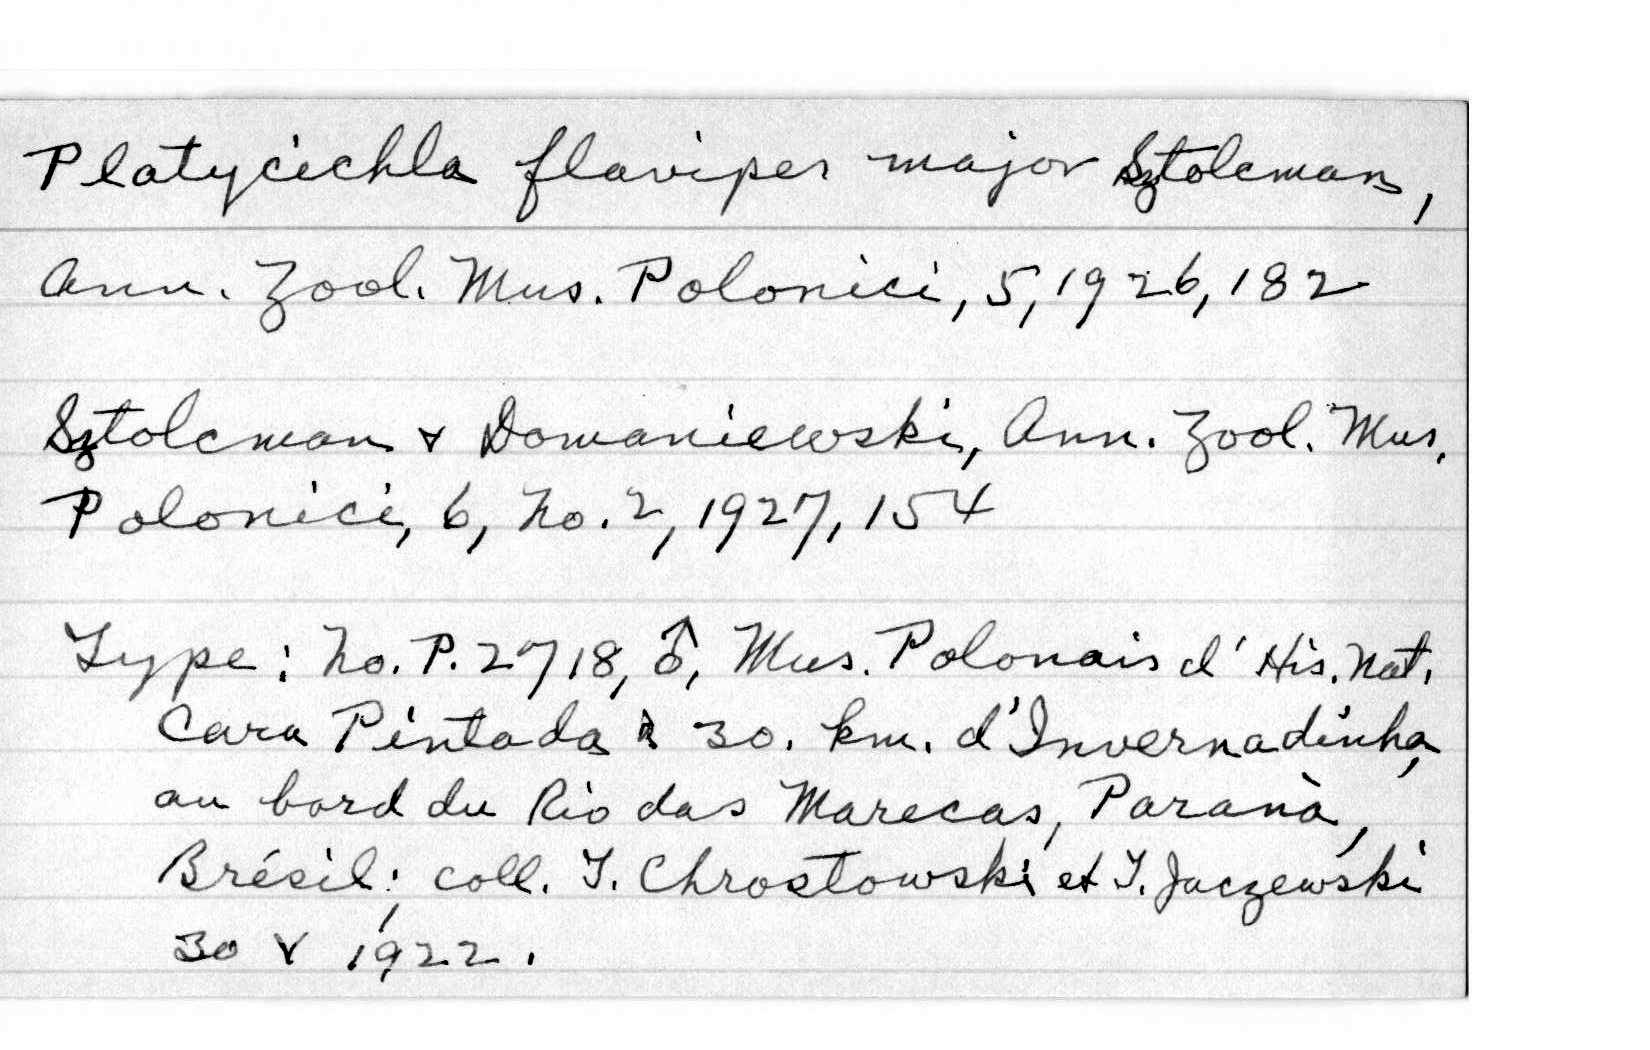 Platycichla flavipes major Sztolcman,
Ann. Zool. Mus. Polonici, 5, 1926, 182
Sztolcman & Domaniewski, Ann. Zool. Mus.
Polonici, 6, No. 2, 1927, 154
Type: No. P. 2718, ♂, Mus. Polonais d'His. Nat.
Cara Pintada à 30. km. d'Invernadinha,
au bord du Rio das Marecas, Paranà,
Brésil; coll. T. Chrostowski et T. Jaczewski
30 V 1922.